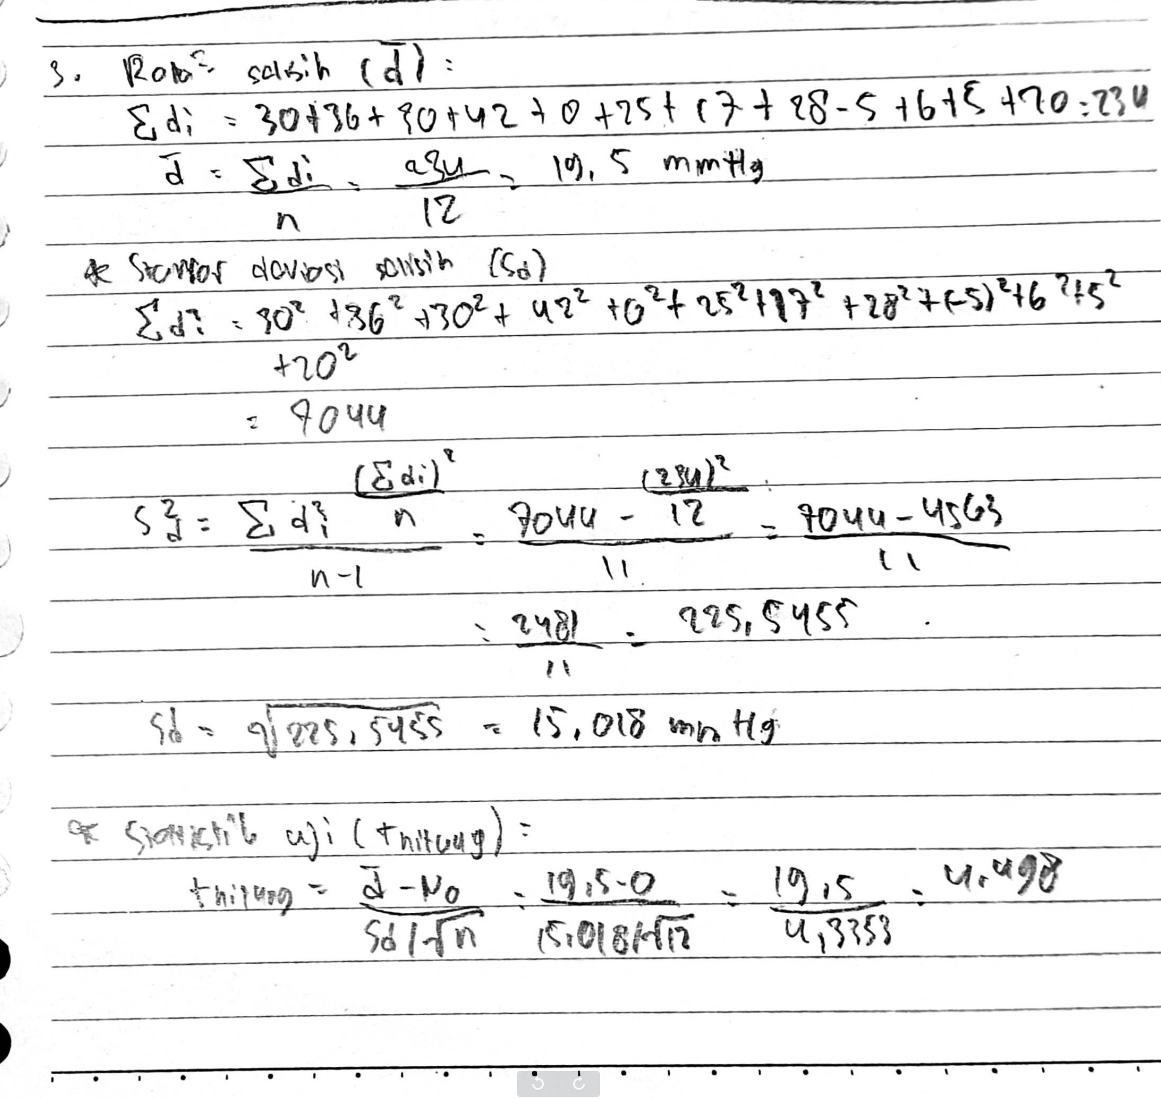 3. Rata² selisih (d̄) :
Σdi = 30+36+30+42+0+25+17+28-5+6+5+20=234
d̄ = Σdi/n = 234/12 = 19,5 mmHg
* Standar deviasi selisih (Sd)
Σdi² = 30²+36²+30²+42²+0²+25²+17²+28²+(-5)²+6²+5²
+20²
= 7044
S²d = (Σdi² (Σdi)²/n)/(n-1) = (7044 - (234)²/12)/11 = (7044-4563)/11
= 2481/11 = 225,5455
Sd = √225,5455 = 15,018 mmHg
* Statistik uji (thitung) =
thitung = (d̄ - μ0)/(Sd/√n) = (19,5-0)/(15,018/√12) = 19,5/4,3353 = 4,498